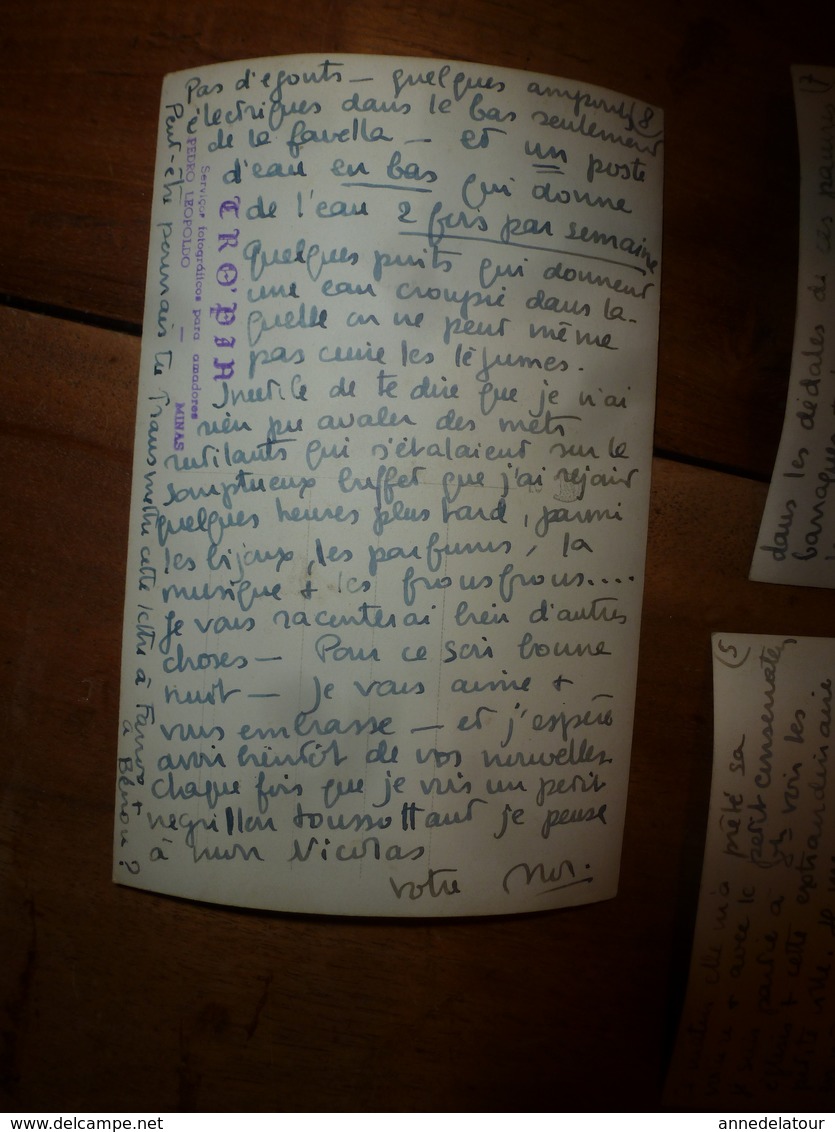 8)
Pas d'egouts — quelques ampoules
électriques dans le bas seulement
de la favella — et un poste
d'eau en bas qui donne
de l'eau 2 fois par semaine
Quelques puits qui donnent
une eau croupie dans la-
quelle on ne peut même
pas cuire les légumes.
Inutile de te dire que je n'ai
rien pu avaler des mets
rutilants qui s'étalaient sur le
somptueux buffet que j'ai rejoint
quelques heures plus tard, parmi
les bijoux, les parfums, la
musique + les frousfrous....
Je vous raconterai bien d'autres
choses — Pour ce soir bonne
nuit — Je vous aime +
vous embrasse — et j'espère
avoir bientôt de vos nouvelles.
Chaque fois que je vois un petit
negrillon toussottant je pense
à mon Nicolas
votre
Peut-être pourrais tu transmettre cette lettre à +
à ?
Serviços fotográficos para amadores
TROPIA
PEDRO LEOPOLDO — MINAS
7)
dans les dédales de ces
5)
prêté sa
voiture + avec le petit
je suis partie à voir les
+ cette extraordinaire
www.delcampe.net
annedelatour